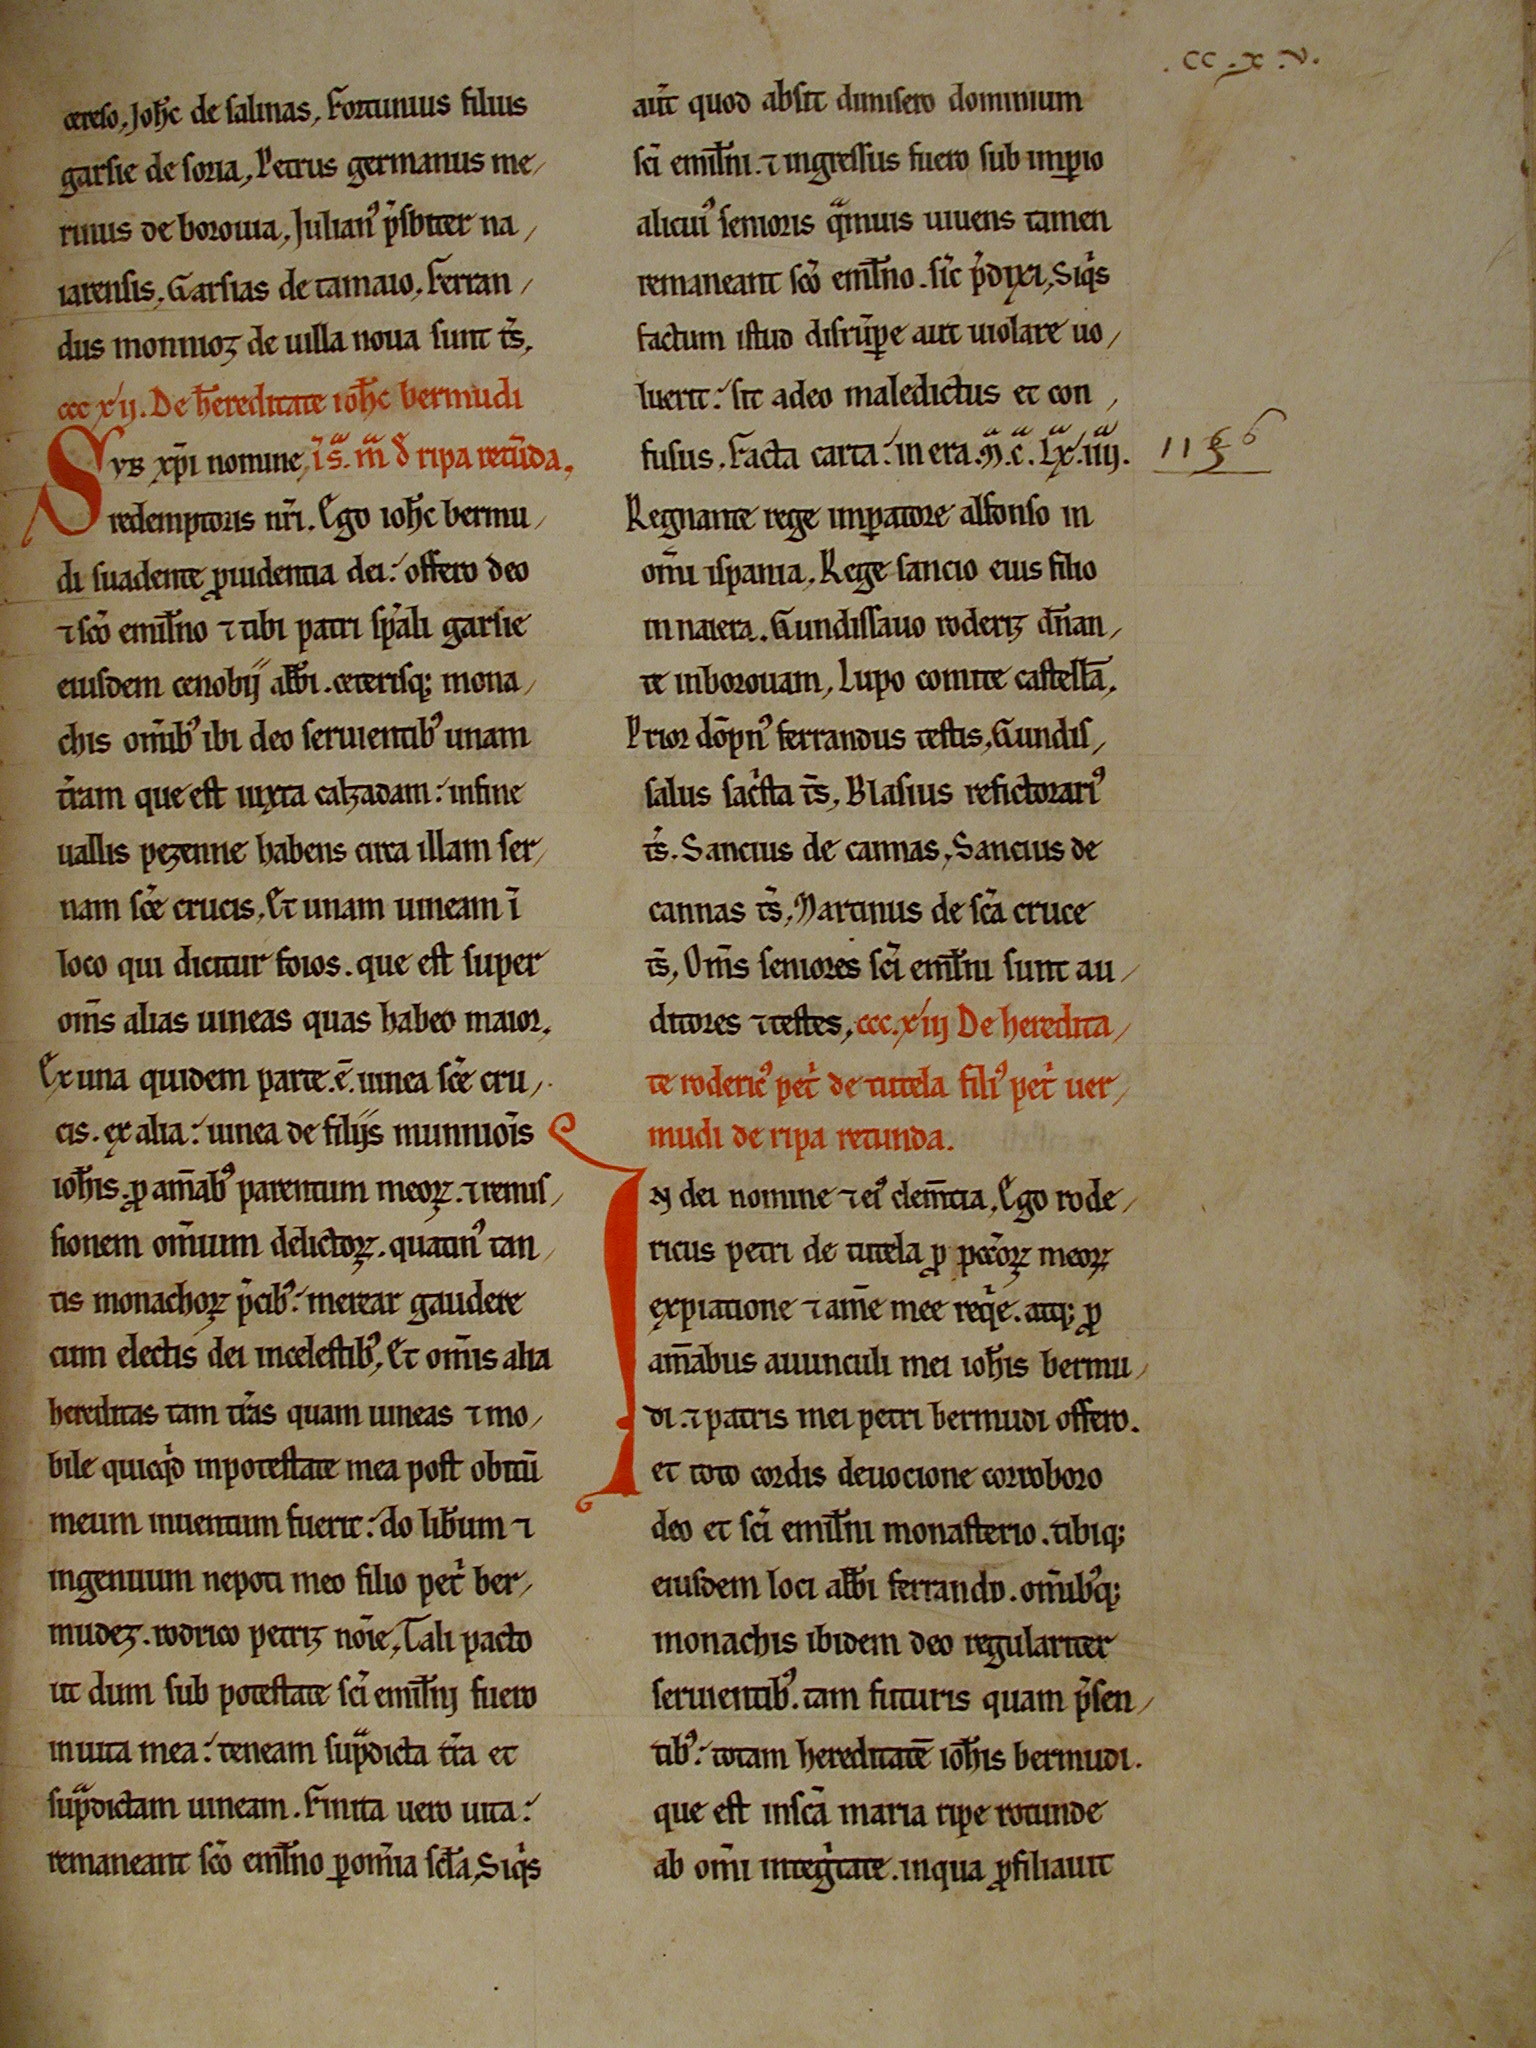 .cc.x.v.
cereso, Joh̅c de salinas, Fortunius filius
garsie de soria, Petrus germanus me/
rinus de borouia, Julian⁹ p̃sbiter na/
iarensis, Garsias de tamaio, Ferran/
dus monnioz de uilla noua sunt t̃s,
ccc xij. De h̃ereditate ioh̅c bermudi
Svb xp̅i nomine, i s̃. m̃ d ripa retũda,
redemptoris nr̃i. Ego ioh̅c bermu/
di suadente ꝓuidentia dei: offero deo
⁊ sc̃o emil̅no ⁊ tibi patri sp̃ali garsie
eiusdem cenobij abb̅i. ceterisq; mona/
chis om̅ib⁹ ibi deo seruientib⁹ unam
t̃ram que est iuxta calzadam: infine
uallis pezenne habens circa illam ser/
nam sc̃e crucis, Et unam uineam ĩ
loco qui dicitur foios. que est super
om̅s alias uineas quas habeo maior,
Ex una quidem parte. ẽ. uinea sc̃e cru/
cis. ex alia: uinea de filijs munniõis
ioh̅is. ꝓ am̅ab⁹ parentum meoꝝ. ⁊ remis/
sionem om̅ium delictoꝝ. quatin⁹ tan/
tis monachoꝝ p̃cib⁹: merear gaudere
cum electis dei incelestib⁹, Et om̅is alia
hereditas tam tr̃as quam uineas ⁊ mo/
bile quicq̇d inpotestate mea post obitũ
meum inuentum fuerit: do lib̅um ⁊
ingenuum nepoti meo filio pet̃ ber/
mudez. rodrico petriz nõie, Tali pacto
ut dum sub potestate sc̃i emil̅nij fuero
inuita mea: teneam sup̃dicta tr̃a et
sup̃dictam uineam. Finita uero uita:
remaneant sc̃o emil̅no ꝑ om̅ia sc̅la, Siq̇s
aũt quod absit dimisero dominium
sc̃i emil̅ni. ⁊ ingressus fuero sub imꝑio
alicui⁹ senioris q̃muis uiuens tamen
remaneant sc̃o emil̅no. sic̃ p̃dixi, Siq̇s
factum istud disrũpe aut uiolare uo/
luerit: sit adeo maledictus et con,
fusus. Facta carta: in era. M̃. c̃. Lx̃. iiij.
1156
Regnante rege imꝑatore alfonso in
om̅i ispania, Rege sancio eius filio
in naiera. Gundissauo roderiz dñan/
te inborouam, Lupo comite castell̃a,
Prior dõpn⁹ ferrandus testis, Gundis/
salus sac̃sta t̃s, Blasius refictorari⁹
t̃s. Sancius de cannas, Sancius de
cannas t̃s, Martinus de sc̃a cruce
t̃s, Om̅s seniores sc̃i emil̅ni sunt au/
ditores ⁊ testes, ccc.xiij De heredita/
te roderic⁹ pet̃ de tutela fili⁹ pet̃ uer/
mudi de ripa retunda.
In dei nomine ⁊ ei⁹ clem̅tia, Ego rode/
ricus petri de tutela ꝓ pcc̃oꝝ meoꝝ
expiatione ⁊ am̅e mee req̇e. atq; ꝓ
am̅abus auunculi mei ioh̅is bermu/
di. ⁊ patris mei petri bermudi offero.
et toto cordis deuocione corroboro
deo et sc̃i emil̅ni monasterio. tibiq;
eiusdem loci abb̅i ferrando. om̅ib⁹q;
monachis ibidem deo regulariter
seruientib⁹. tam futuris quam p̃sen/
tib⁹: totam hereditatẽ ioh̅is bermudi.
que est insc̃a maria ripe rotunde
ab om̅i integ̃tate. inqua ꝓfiliauit